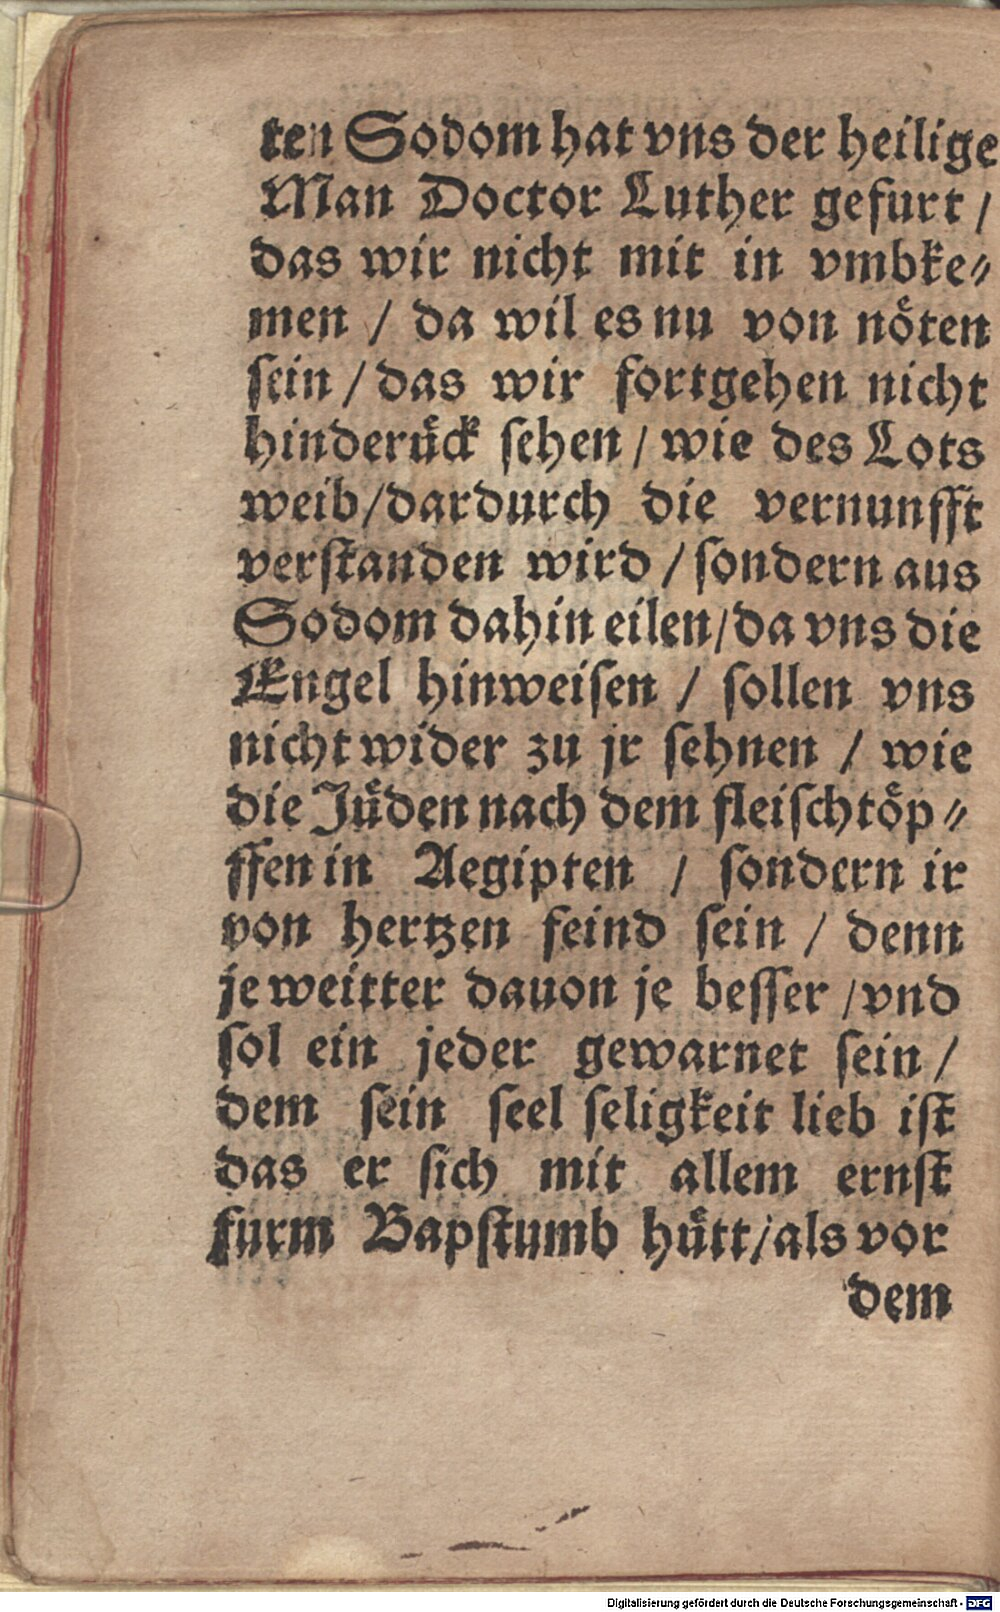 ten Sodom hat vns der heilige
Man Doctor Luther gefurt /
das wir nicht mit in vmbke⸗
men / da wil es nu von nöten
sein / das wir fortgehen nicht
hinderück sehen / wie des Lots
weib / dardurch die vernunfft
verstanden wird / sondern aus
Sodom dahin eilen / da vns die
Engel hinweisen / sollen vns
nicht wider zu jr sehnen / wie
die Jüden nach dem fleischtöp⸗
ffen in Aegipten / sondern ir
von hertzen feind sein / denn
je weitter dauon je besser / vnd
sol ein jeder gewarnet sein /
dem sein seel seligkeit lieb ist
das er sich mit allem ernst
furm Bapstumb hütt / als vor
dem
Digitalisierung gefördert durch die Deutsche Forschungsgemeinschaft - DFG